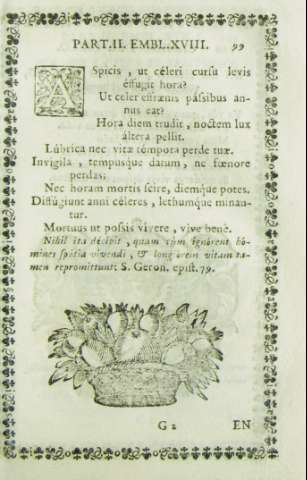 PART. II. EMBL. XVIII. 99
ASpicis, ut céleri cursu levis
effugit hora?
Ut celer effrænis pássibus an-
nus eat?
Hora diem trudit, noctem lux
áltera pellit.
Lúbrica nec vitæ témpora perde tuæ.
Invígila, tempusque datum, ne fœnore
perdas;
Nec horam mortis scire, diemque potes.
Diffúgiunt anni céleres, lethumque minan-
tur.
Mortuus ut possis vívere, vive benè.
Nihil ita décipit, quam cùm ignorent hó-
mines spátia vivendi, & longiorem vitam ta-
men repromittunt; S. Geron. epist. 79.
G 2 EN